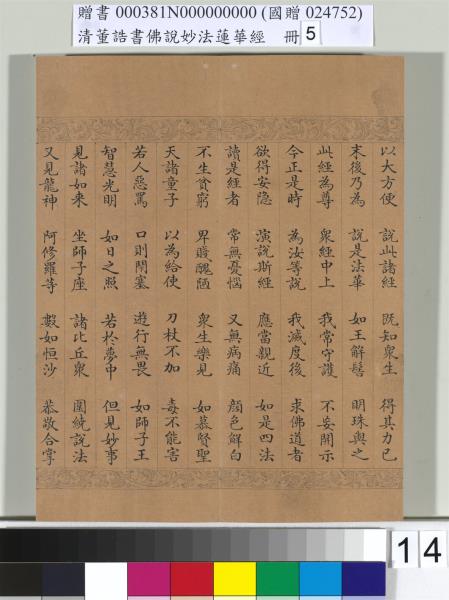 贈書 000381N000000000 (國贈 024752)
清董誥書佛說妙法蓮華經 冊 5
以大方便 說此諸經 既知眾生 得其力已
末後乃為 說是法華 如王解髻 明珠與之
此經為尊 眾經中上 我常守護 不妄開示
今正是時 為汝等說 我滅度後 求佛道者
欲得安隐 演說斯經 應當親近 如是四法
讀是經者 常無憂惱 又無病痛 顏色鮮白
不生貧窮 卑賤醜陋 眾生樂見 如慕賢聖
天諸童子 以為給使 刀杖不加 毒不能害
若人惡罵 口則閉塞 遊行無畏 如師子王
智慧光明 如日之照 若於夢中 但見妙事
見諸如來 坐師子座 諸比丘眾 圍繞說法
又見龍神 阿修羅等 數如恒沙 恭敬合掌
14